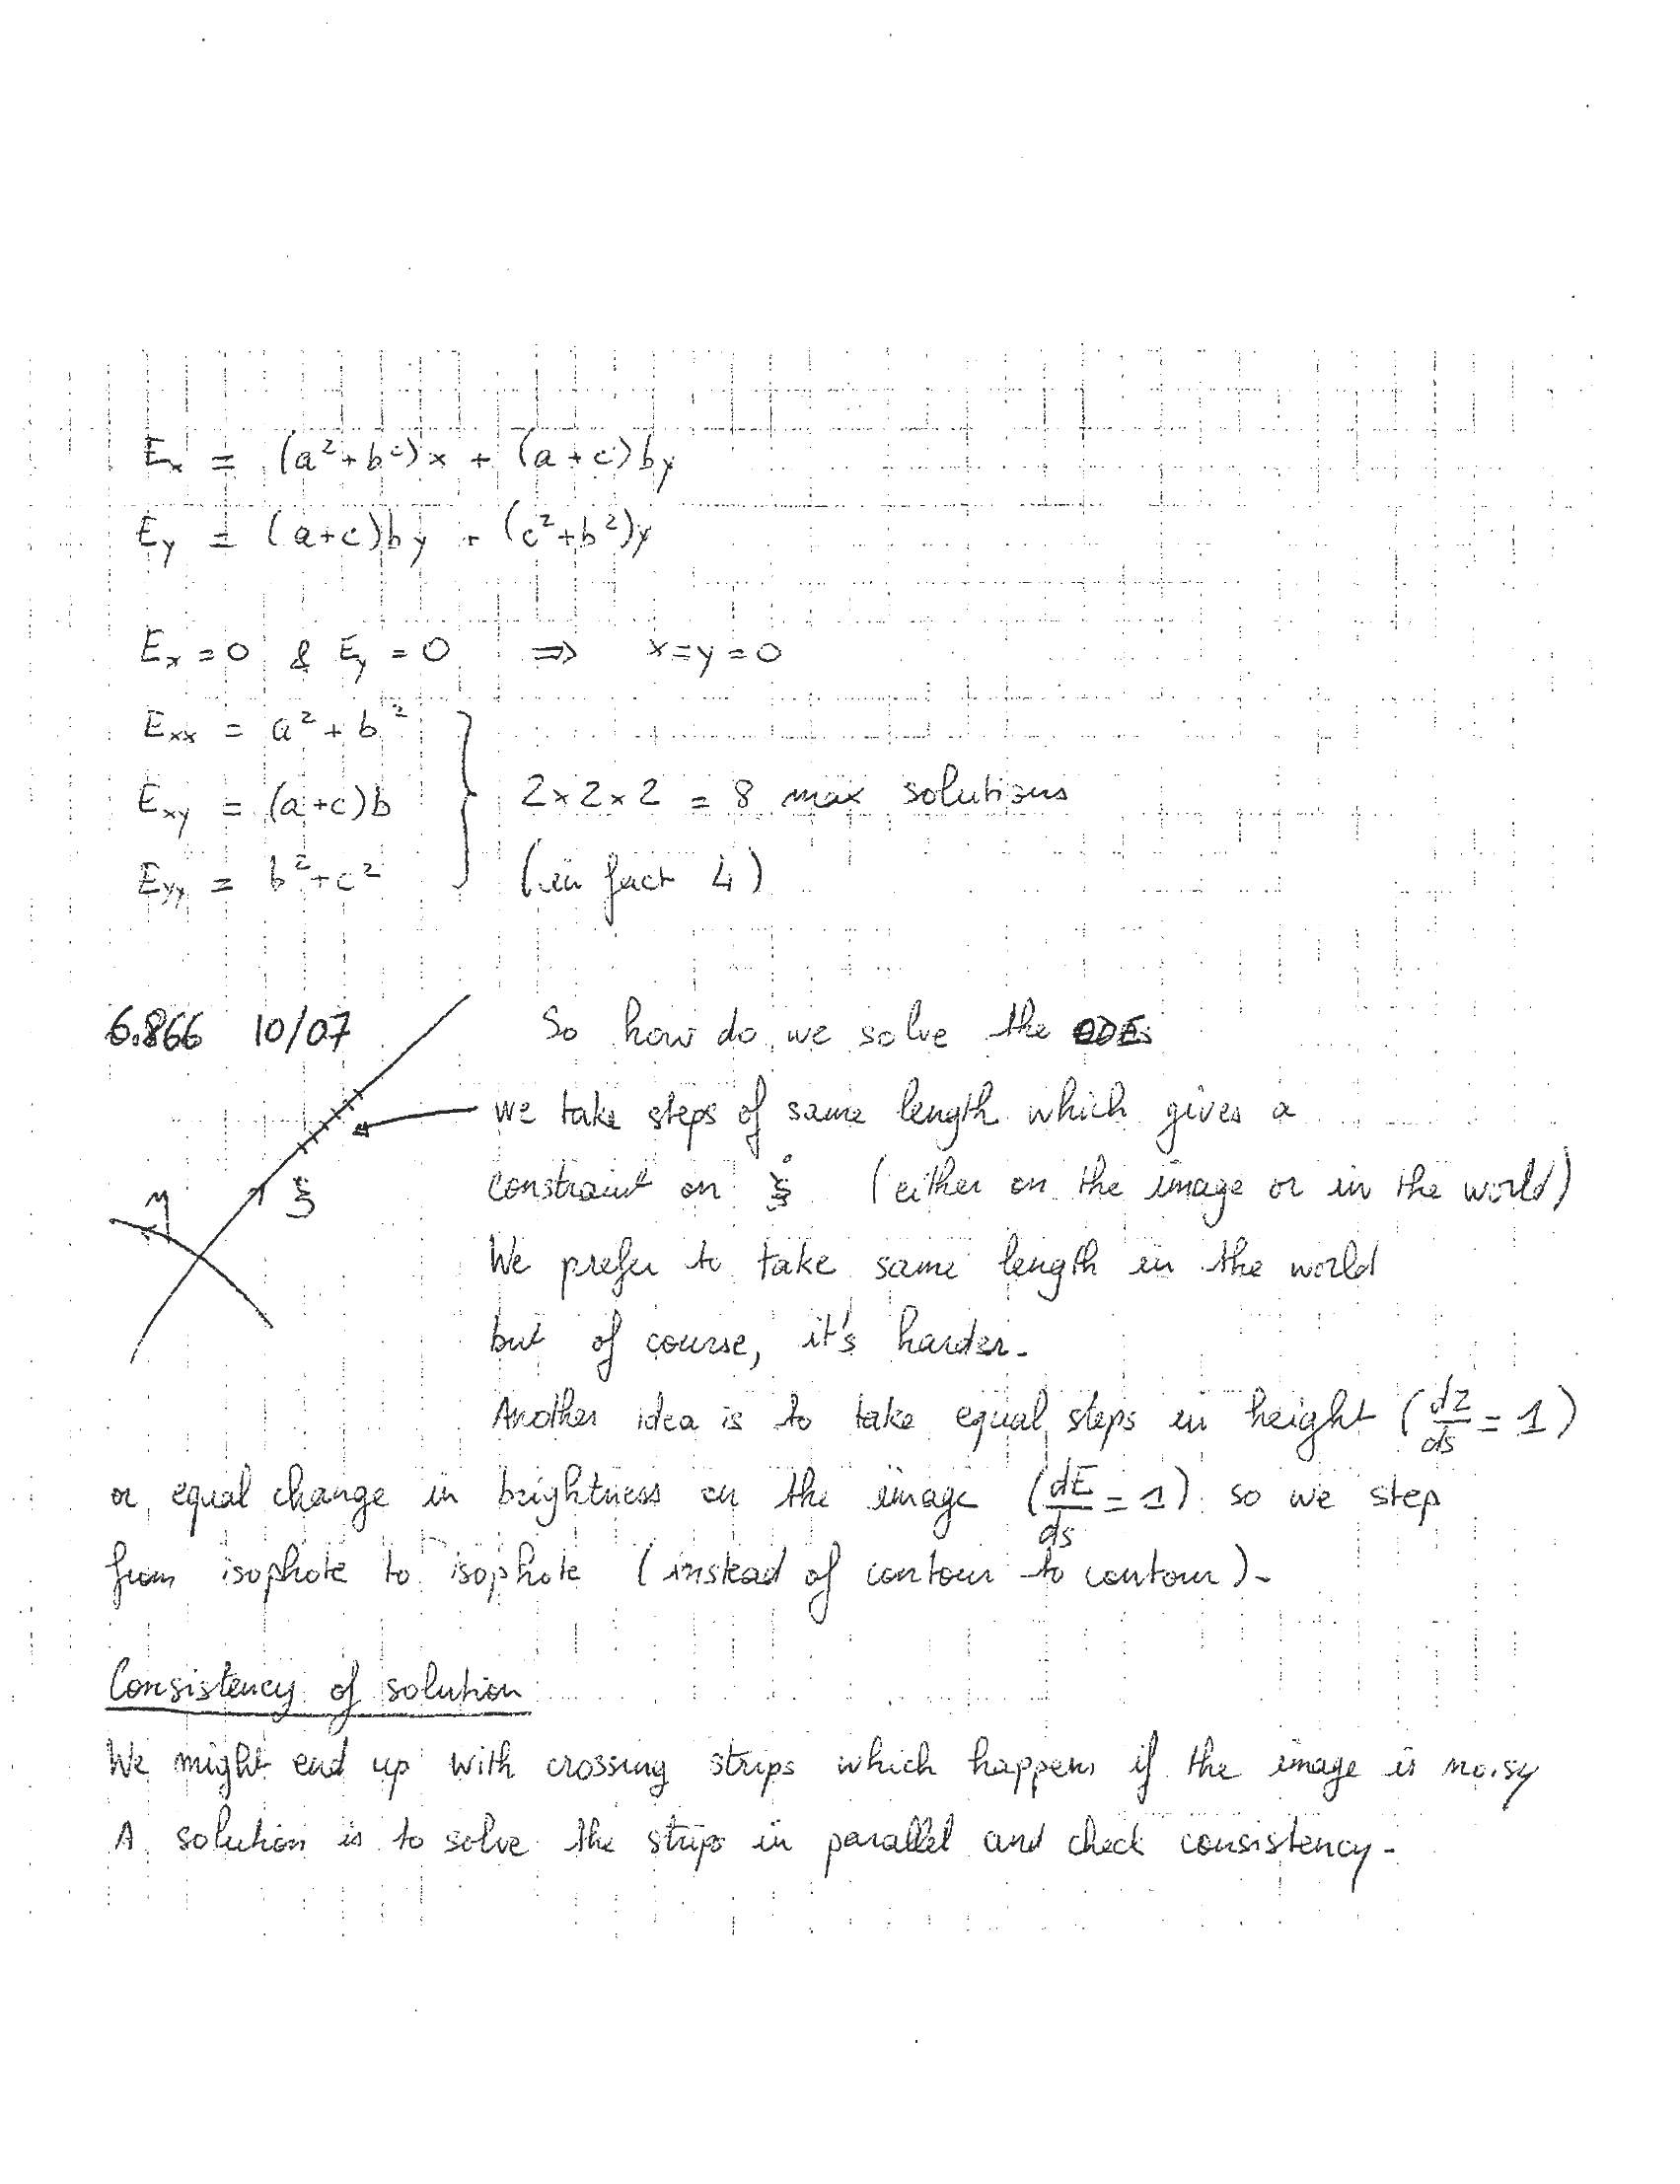 Eₓ = (a² + b²)x + (a+c)by
E_y = (a+c)by + (c²+b²)y
Eₓ = 0 & E_y = 0 ⇒ x=y=0
Eₓₓ = a² + b²
E_xy = (a+c)b
2×2×2 = 8 max solutions
E_yy = b² + c²
(in fact 4)
6.866 10/07
So how do we solve the ODEs
we take steps of same length which gives a
constraint on ξ̇ (either on the image or in the world)
η
ξ
We prefer to take same length in the world
but of course, it's harder.
Another idea is to take equal steps in height (dz/ds = 1)
or equal change in brightness on the image (dE/ds = 1) so we step
from isophote to isophote (instead of contour to contour).
Consistency of solution
We might end up with crossing strips which happens if the image is noisy
A solution is to solve the strips in parallel and check consistency.